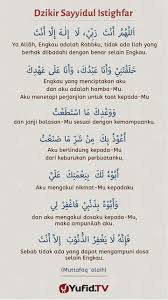 Dzikir Sayyidul Istighfar
اَللَّهُمَّ أَنْتَ رَبِّيْ ، لَا إِلَهَ إِلَّا أَنْتَ
Ya Allâh, Engkau adalah Rabbku, tidak ada ilah yang
berhak diibadahi dengan benar selain Engkau.
خَلَقْتَنِيْ وَأَنَا عَبْدُكَ، وَأَنَا عَلَى عَهْدِكَ
Engkau yang menciptakan aku
dan aku adalah hamba-Mu.
Aku menetapi perjanjian untuk taat kepada-Mu
وَوَعْدِكَ مَا اسْتَطَعْتُ
dan janji balasan-Mu sesuai dengan kemampuanku.
أَعُوْذُ بِكَ مِنْ شَرِّ مَا صَنَعْتُ
Aku berlindung kepada-Mu
dari keburukan perbuatanku,
أَبُوْءُ لَكَ بِنِعْمَتِكَ عَلَيَّ
Aku mengakui nikmat-Mu kepadaku
وَأَبُوْءُ بِذَنْبِيْ فَاغْفِرْ لِيْ
dan aku mengakui dosaku kepada-Mu,
maka ampunilah aku.
فَإِنَّهُ لَا يَغْفِرُ الذُّنُوْبَ إِلَّا أَنْتَ
Sebab tidak ada yang dapat mengampuni dosa
selain Engkau.
(Muttafaq 'alaih)
YUFID.TV